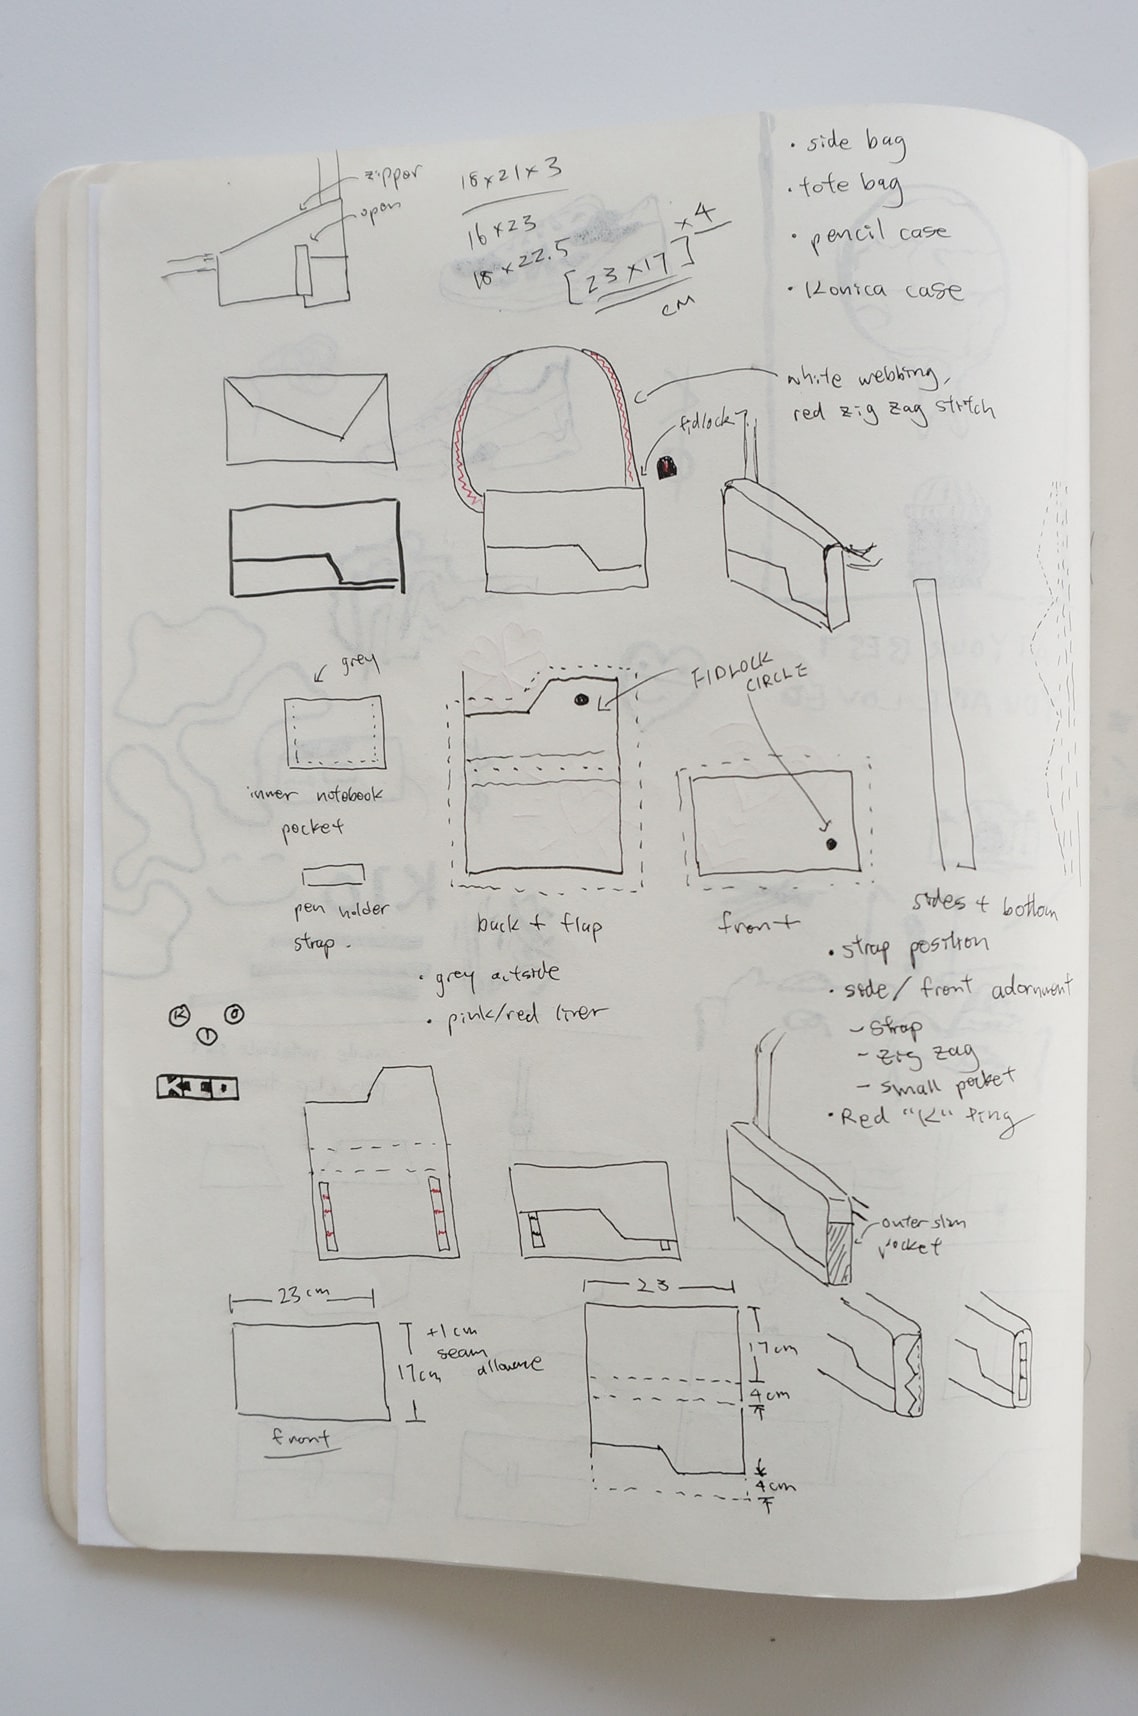 zipper
open
18 x 21 x 3
16 x 23
18 x 22.5
[23 x 17] x 4
cm
• side bag
• tote bag
• pencil case
• Konica case
white webbing,
red zig zag stitch
fidlock
grey
inner notobook
pocket
pen holder
strap.
FIDLOCK
CIRCLE
back + flap
• grey outside
• pink/red liner
front
sides + bottom
• strap position
• side / front adornment
- strap
- zig zag
- small pocket
• Red "K" ting
K
I
O
KIO
outer slim
pocket
23 cm
+1 cm
seam
allowance
17 cm
front
23
17 cm
4 cm
4 cm